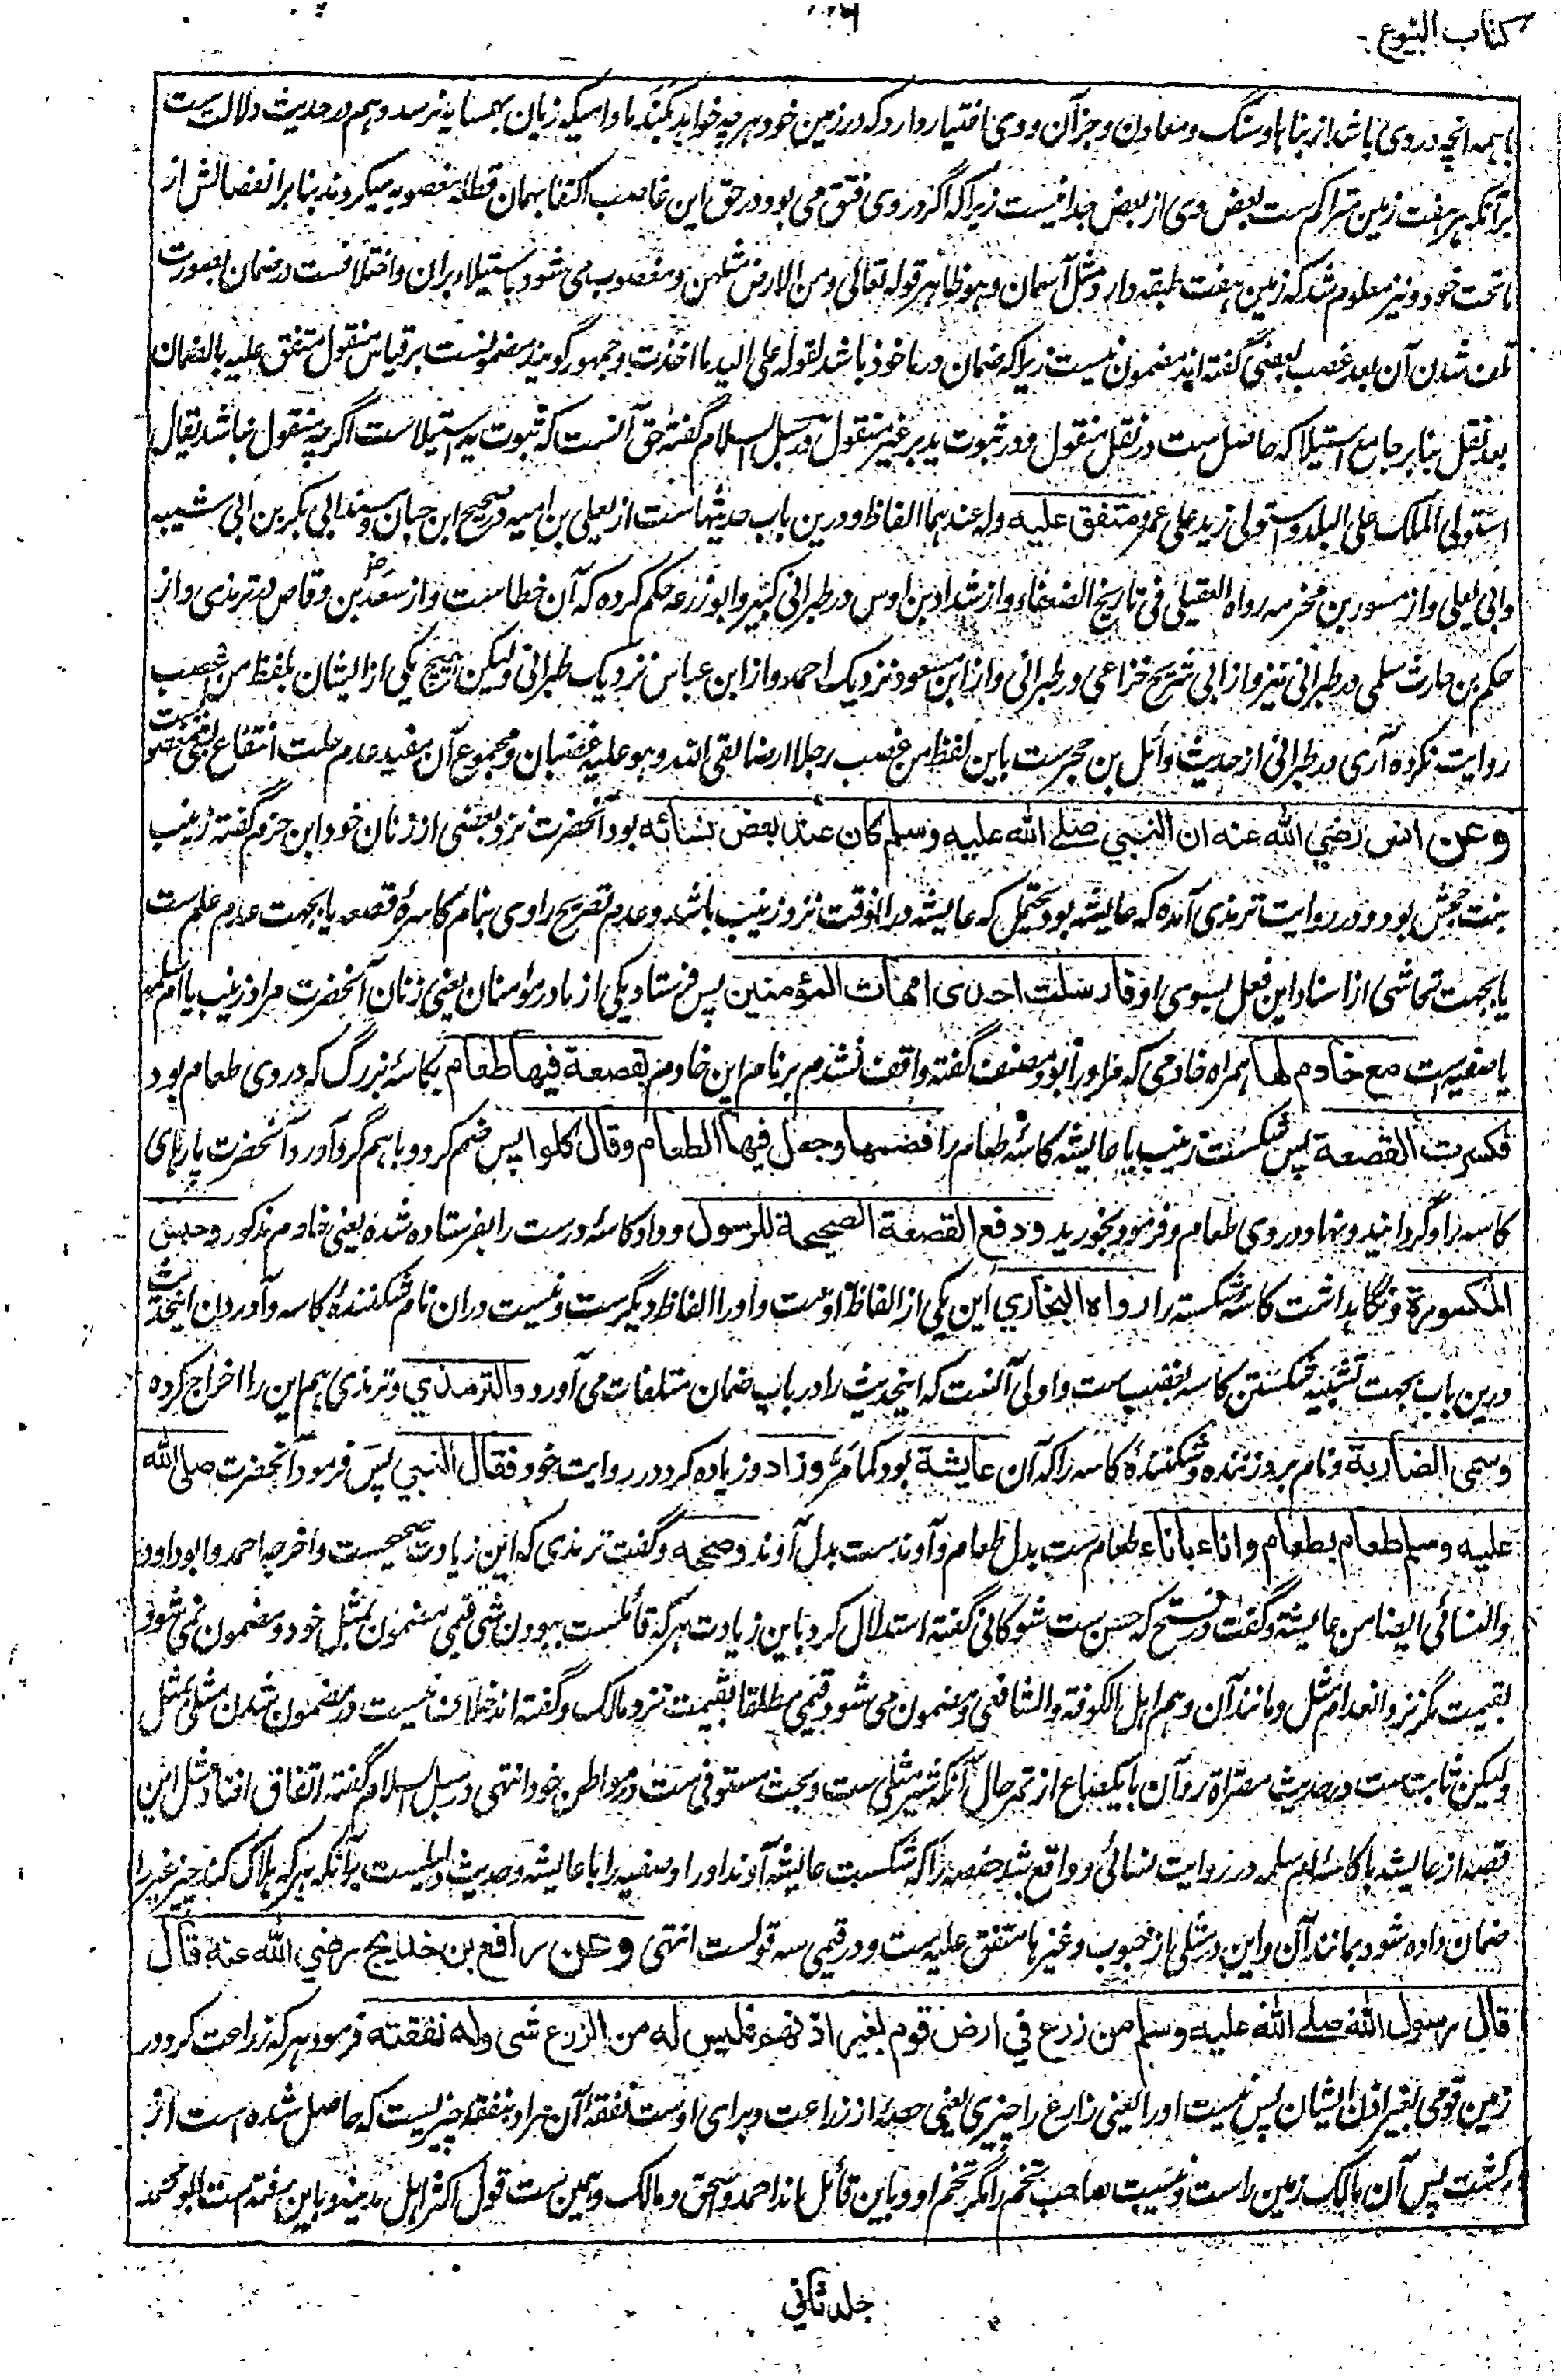 کتاب البیوع
با همه انچه در وی باشد از بناها و سنگ و معادن و جز آن و وی اختیار دارد که در زمین خود هر چه خواهد بکند مادامیکه زیان بهمسایه نرسد و هم در حدیث دلالت ست
بر آنکه هر هفت زمین متراکم ست بعض وی از بعض جدا نیست زیرا که اگر در وی فتق می بود در حق این غاصب اکتفا بهمان قطعه مغصوبه میکردند بنا بر انفصالش از
ما تحت خود و نیز معلوم شد که زمین هفت طبقه دارد مثل آسمان و هو ظاهر قوله تعالی و من الارض مثلهن و مغصوب می شود باستیلا بران و اختلافست در ضمان بصورت
تلف شدن آن بعد غصب بعضی گفته اند مضمون نیست زیرا که ضمان در ماخوذ باشد لقوله علی الید ما اخذت و جمهور گویند مضمونست بر قیاس منقول متفق علیه بالضمان
بعد نقل بنا بر جامع استیلا که حاصل ست در نقل منقول و در ثبوت ید بر غیر منقول در سبل السلام گفته حق آنست که ثبوت ید استیلاست اگر چه منقول نباشد یقال
استولی الملک علی البلد و استولی زید علی عمرو متفق علیه وله عندهما الفاظ و درین باب حدیثهاست از یعلی بن امیه در صحیح ابن حبان و مسند ابی بکر بن ابی شیبه
و ابی یعلی و از مسور بن مخرمه رواه العقیلی فی تاریخ الضعفاء و از شداد بن اوس در طبرانی کبیر و ابو زرعه حکم کرده که آن خطاست و از سعد رض بن وقاص در ترمذی و از
حکم بن حارث سلمی در طبرانی نیز و از ابی شریح خزاعی در طبرانی و از ابن مسعود نزدیک احمد و از ابن عباس نزدیک طبرانی و لیکن هیچ یکی از ایشان بلفظ من غصب
روایت نکرده آری در طبرانی از حدیث وائل بن حجرست باین لفظ من غصب رجلا ارضا لقی الله و هو علیه غضبان و مجموع آن مفید عدم حلت انتفاع بشی مغصوبست
وعن انس رضي الله عنه ان النبي صلى الله عليه وسلم كان عند بعض نسائه بود آنحضرت نزد بعضی از زنان خود ابن حزم گفته زینب
بنت جحش بود و در روایت ترمذی آمده که عایشه بود محتمل که عایشه در انوقت نزد زینب باشد و عدم تصریح راوی بنام کاسرهٔ قصعه یا بجهت عدم علم ست
یا بجهت تحاشی از اسناد این فعل بسوی او فارسلت احدى امهات المؤمنين پس فرستاد یکی از مادر مؤمنان یعنی زنان آنحضرت مراد زینب یا ام سلمه
یا صفیه است مع خادم لها همراه خادمی که مر او را بود مصنف گفته واقف نشدم بر نام این خادم بقصعة فيها طعام بکاسهٔ بزرگ که در وی طعام بود
فكسرت القصعة پس شکست زینب یا عایشه کاسهٔ طعام را فضمها وجعل فيها الطعام وقال كلوا پس ضم کرد و با هم گرد آورد آنحضرت پارهای
کاسه را و گردانید و نهاد در وی طعام و فرمود بخورید ودفع القصعة الصحيحة للرسول و داد کاسهٔ درست را بفرستاده شده یعنی خادم مذکور وحبس
المكسورة و نگاهداشت کاسهٔ شکسته را رواه البخاري این یکی از الفاظ اوست و او را الفاظ دیگرست و نیست دران نام شکنندهٔ کاسه و آوردن اینحدیث
درین باب بجهت تشبیه شکستن کاسه بغصب ست و اولی آنست که اینحدیث را در باب ضمان متلفات می آورد والترمذي و ترمذی هم این را اخراج کرده
وسمى الضاربة و نام برد زننده و شکنندهٔ کاسه را که آن عايشة بود کما مر وزاد و زیاده کرد در روایت خود فقال النبي پس فرمود آنحضرت صلی الله
عليه وسلم طعام بطعام واناء باناء طعام ست بدل طعام و آوند ست بدل آوند وصححه و گفت ترمذی که این زیادت صحیحست و اخرجه احمد و ابو داود
والنسائی ایضا من عایشة و گفت در فتح که حسن ست شوکانی گفته استدلال کرد باین زیادت هر که قائلست ببودن شی قیمی مضمون بمثل خود و مضمون نمی شود
بقیمت مگر نزد انعدام مثل و مانند آن و هم اهل الکوفة والشافعی و مضمون می شود قیمی مطلقا بقیمت نزد مالک و گفته اند خلاف نیست در مضمون شدن مثلی بمثل
و لیکن ثابت ست در حدیث مصراة رد آن با یکصاع از تمر حال آنکه شیر مثلی ست و بحث مستوفی ست در مواطن خود انتهی در سبل السلام گفته اتفاق افتاد مثل این
قصه از عایشه با کاسهٔ ام سلمه در روایت نسائی و واقع شد حفصه را که شکست عایشه آوند او را و صفیه را با عایشه و حدیث دلیلست برآنکه هر که هلاک کند چیز غیر را
ضمان داده شود بمانند آن و این در مثلی از حبوب و غیرها متفق علیه ست و در قیمی سه قولست انتهی وعن رافع بن خديج رضي الله عنه قال
قال رسول الله صلى الله عليه وسلم من زرع في ارض قوم بغير اذنهم فليس له من الزرع شى وله نفقته فرمود هر که زراعت کرد در
زمین قومی بغیر اذن ایشان پس نیست او را یعنی زارع را چیزی یعنی حصهٔ از زراعت و برای اوست نفقهٔ آن مراد بنفقه چیزیست که حاصل شده است از
کشت پس آن مالک زمین راست و نیست صاحب تخم را مگر تخم او و باین قائل اند احمد و اسحق و مالک و همین ست قول اکثر اهل مدینه و باین رفته است ابو محمد
جلد ثانی